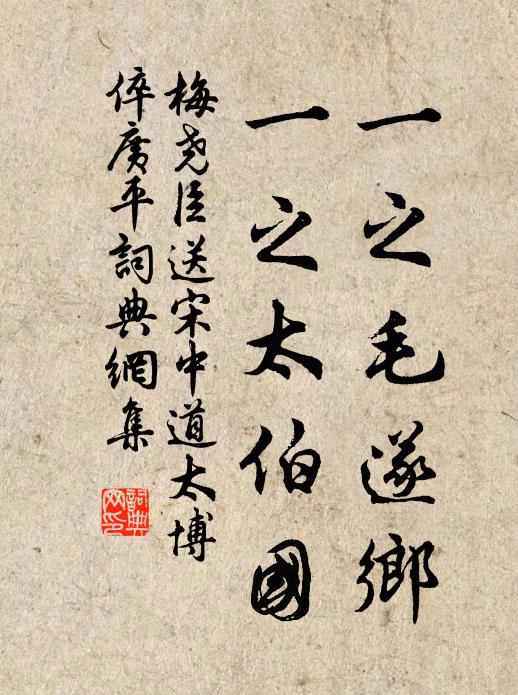 一之毛遂鄉
一之太伯國
梅堯臣送宋中道太博
倅廣平詞典網集
詞典網印